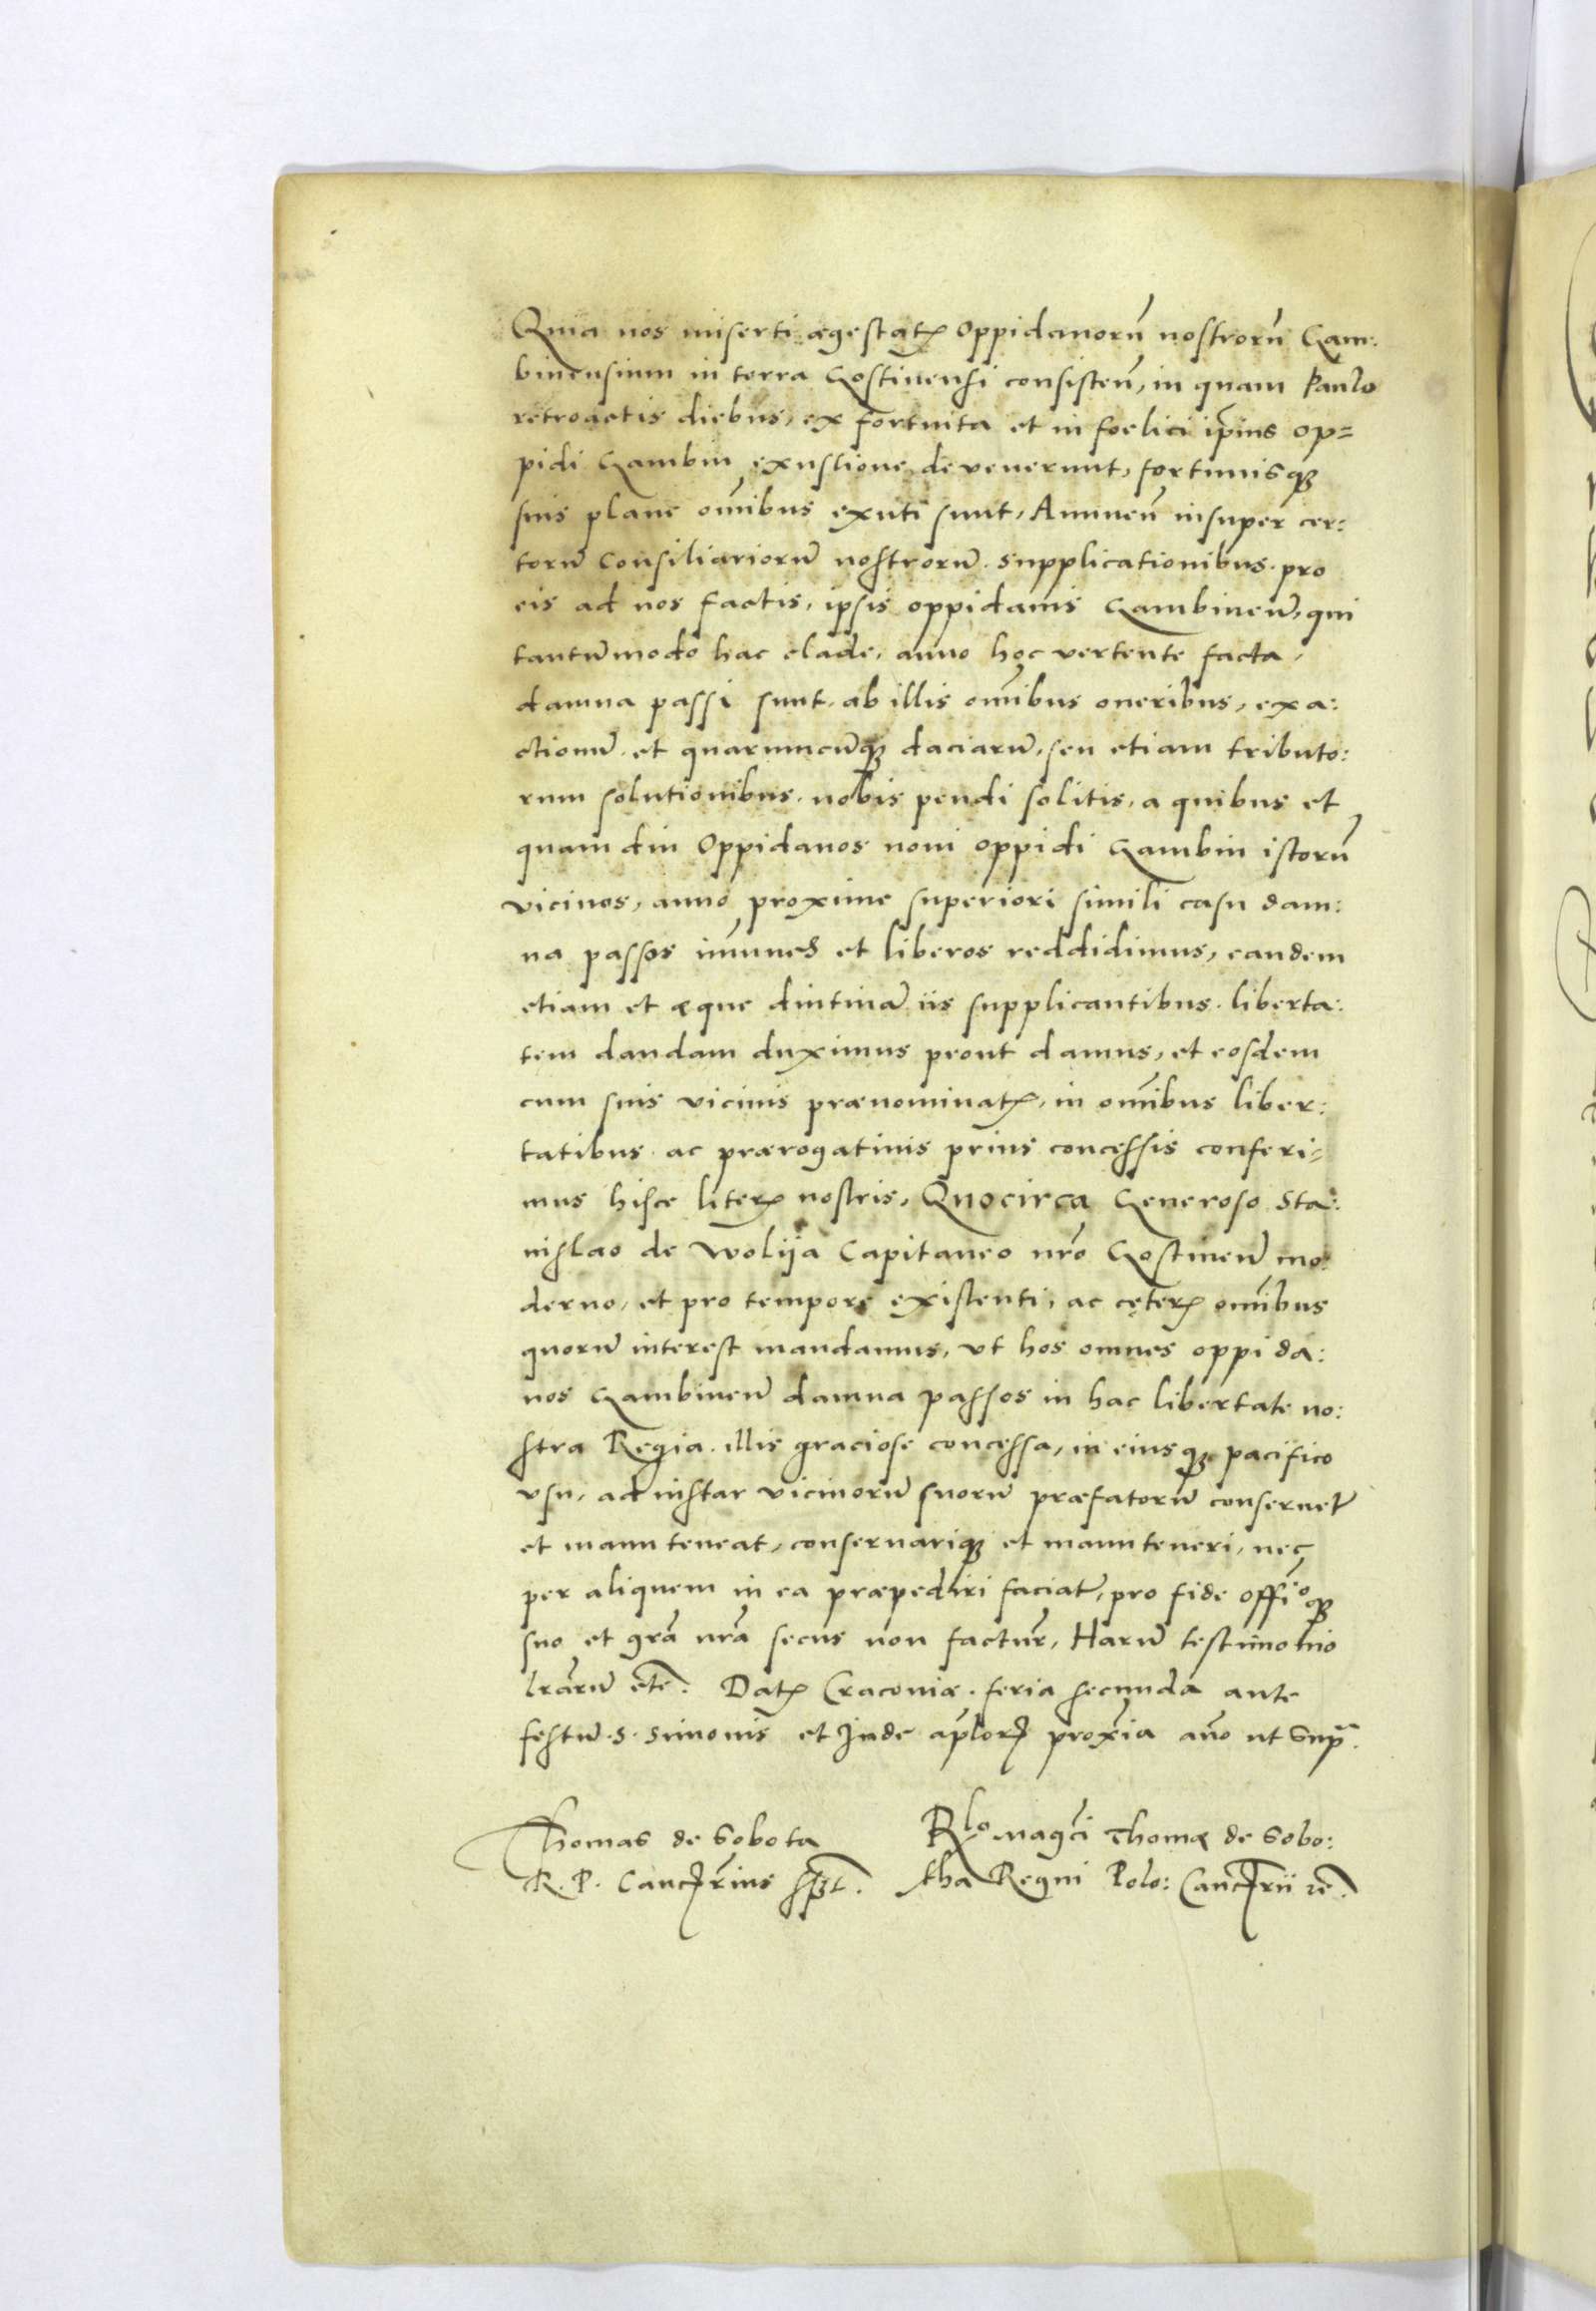 Quia nos miserti ægestatꝭ Oppidanorū nostrorū Gam:
binensium in terra Gostinensi consisteñ, in quam Paulo
retroactis diebus, ex fortuita et in foelici ip̄ius op=
pidi Gambin exustione devenerunt, fortunisqꝫ
suis plane om̄ibus exuti sunt, Annueñ insuper cer:
torū Consiliariorū nostrorū supplicationibus pro
eis ad nos factis, ipsis oppidanis Gambineñ, qui
tantūmodo hac clade, anno hoc vertente facta,
damna passi sunt, ab illis om̄ibus oneribus, exa:
ctionū et quarumcūqꝫ daciarū, seu etiam tributo:
rum solutionibus nobis pendi solitis, a quibus et
quamdiu Oppidanos novi oppidi Gambin istorū
vicinos, anno proxime superiori simili casu dam:
na passos im̄unes et liberos reddidimus, eandem
etiam et æque diutinā iis supplicantibus liberta:
tem dandam duximus prout damus, et eosdem
cum suis vicinis prænominatꝭ, in om̄ibus liber:
tatibus ac prærogativis prius concessis conferi=
mus hisce literꝭ nostris, Quocirca Generoso Sta:
nislao de Wolija Capitaneo nr̄o Gostineñ mo:
derno, et pro tempore existenti, ac cęterꝭ om̄ibus
quorū interest mandamus, ut hos omnes oppida:
nos Gambineñ damna passos in hac libertate no:
stra Regia illis graciose concessa, in eiusqꝫ pacifico
usu, ad instar vicinorū suorū præfatorū conservet
et manuteneat, conservariqꝫ et manuteneri, nec
per aliquem in ea præpediri faciat, pro fide offīoqꝫ
suo et grā nrā secus non factur̄, Harū testimonio
lrārū etc̄. Datꝭ Cracoviæ feria secunda ante
festū S. Simonis et Jude ap̄lorꝝ prox̄ia an̄o ut supr̄a.
Thomas de Sobota
R. P. Cancłrius sp̄t.
Rlo magc̄i Thomæ de Sobo:
tha Regni Polo: Cancłrii rc̄.